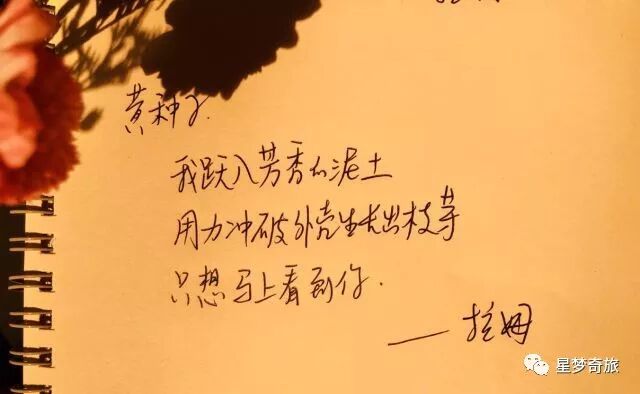 黄种子
我跃入芳香的泥土
用力冲破外壳生长出枝芽
只想马上看到你.
——拉姆
星梦奇旅